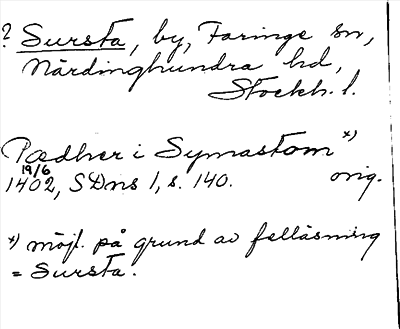 ? Sursta, by, Faringe sn,
Närdinghundra hd,
Stockh. l.
Pædher i Symastom *)
19/6 1402, SDns 1, s. 140. orig.
*) möjl. på grund av felläsning
= Sursta.